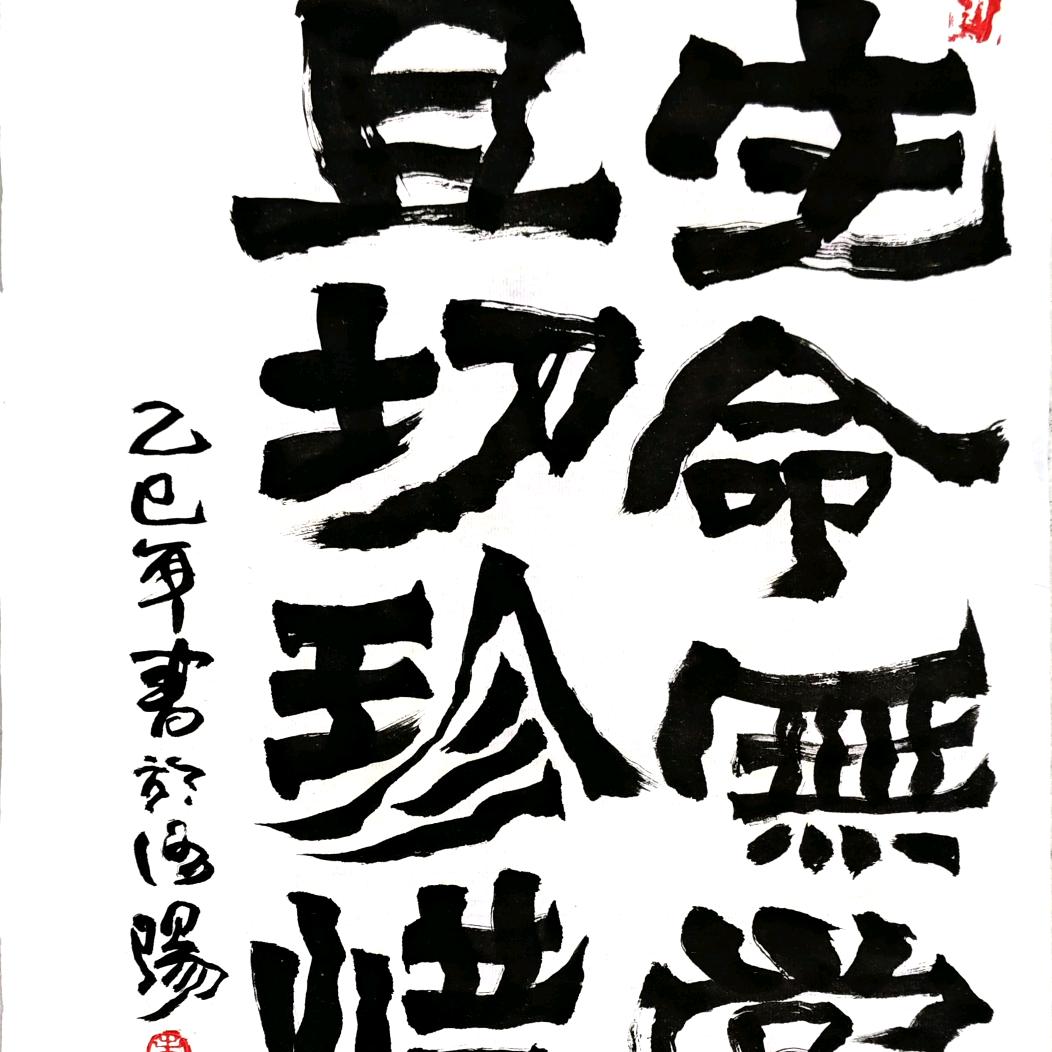 生命無常
且切珍惜
乙巳年書於洛陽